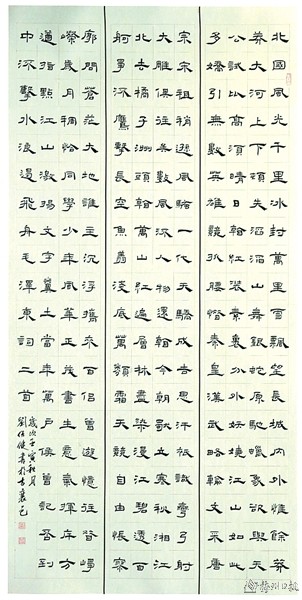 北國風光千里冰封萬里雪飄望長城內外惟餘
莽大河上下頓失滔滔山舞銀蛇原馳蠟象欲與天
公試比高須晴日看紅裝素裹分外妖嬈江山如此
多嬌引無數英雄競折腰惜秦皇漢武略輸文采唐
宗宋祖稍遜風騷一代天驕成吉思汗只識彎弓射
大雕俱往矣數風流人物還看今朝獨立寒秋湘江
北去橘子洲頭看萬山紅遍層林盡染漫江碧透百
舸爭流鷹擊長空魚翔淺底萬類霜天競自由悵寥
廓問蒼茫大地誰主沉浮攜來百侶曾遊憶往昔崢
嶸歲月稠恰同學少年風華正茂書生意氣揮斥方
遒指點江山激揚文字糞土當年萬戶侯曾記否到
中流擊水浪遏飛舟毛澤東詞二首
歲次壬寅秋月
劉伍健書於古襄邑